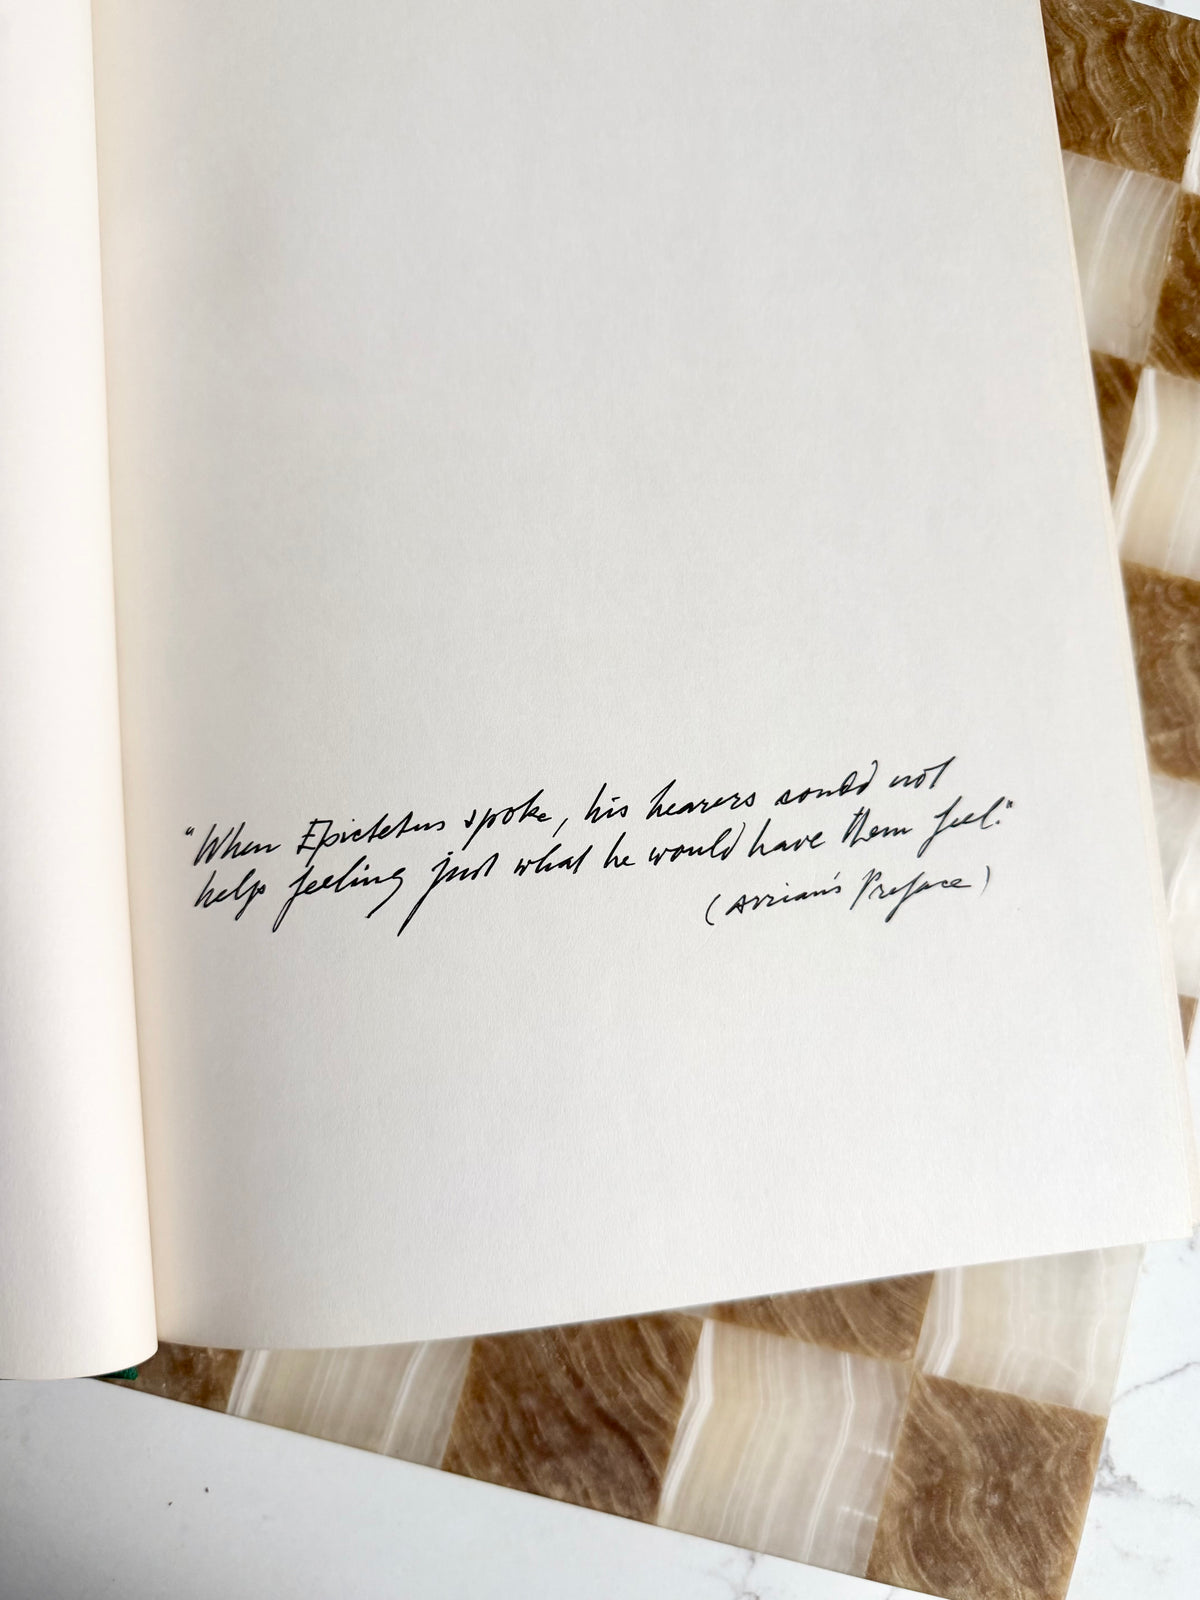 "When Epictetus spoke, his hearers could not
help feeling just what he would have them feel."
(Arrian's Preface)